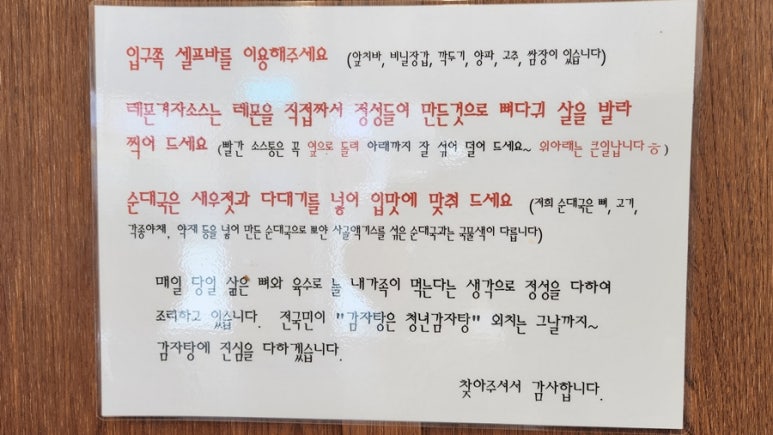 입구쪽 셀프바를 이용해주세요 (앞치바, 비닐장갑, 깍두기, 양파, 고추, 쌈장이 있습니다)
레몬겨자소스는 레몬을 직접짜서 정성들여 만든것으로 뼈다귀 살을 발라
찍어 드세요 (빨간 소스통은 꼭 옆으로 돌려 아래까지 잘 섞어 덜어 드세요~ 위아래는 큰일납니다 ㅎ)
순대국은 새우젓과 다대기를 넣어 입맛에 맞춰 드세요 (저희 순대국은 뼈, 고기,
각종야채, 약재 등을 넣어 만든 순대국으로 뽀얀 사골액기스를 섞은 순대국과는 국물색이 다릅니다)
매일 당일 삶은 뼈와 육수로 늘 내가족이 먹는다는 생각으로 정성을 다하여
조리하고 있습니다. 전국민이 "감자탕은 청년감자탕" 외치는 그날까지~
감자탕에 진심을 다하겠습니다.
찾아주셔서 감사합니다.